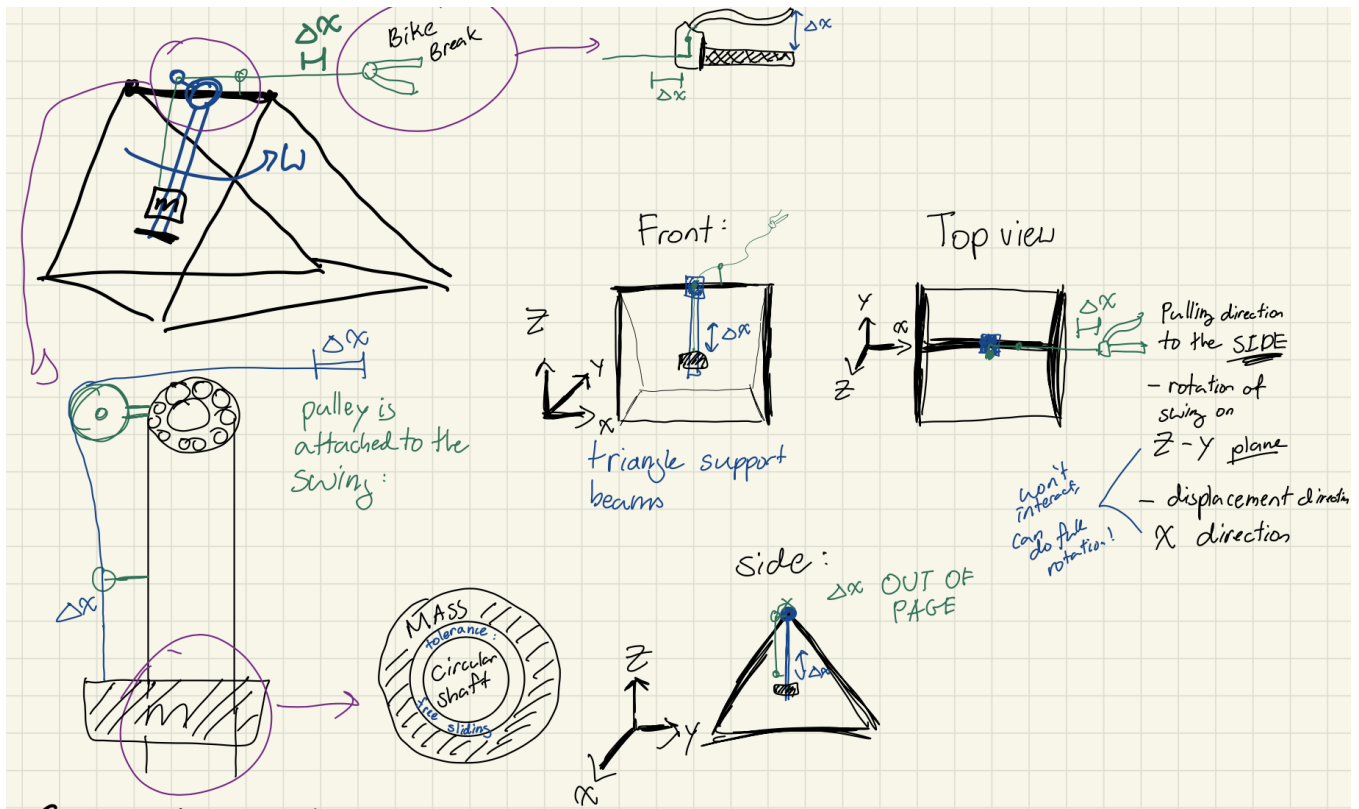 Δx
Bike
Break
Δx
Δx
ω
m
Front:
Top view
Z
Y
X
Δx
Y
x
Z
Δx
Pulling direction
to the SIDE
- rotation of
swing on
Z-Y plane
- displacement direction
X direction
won't
interact,
can
do full
rotation!
triangle support
beams
Δx
pulley is
attached to the
swing:
Δx
m
MASS
tolerance:
Circular
shaft
free sliding
side:
Δx OUT OF
PAGE
Δx
Z
Y
X